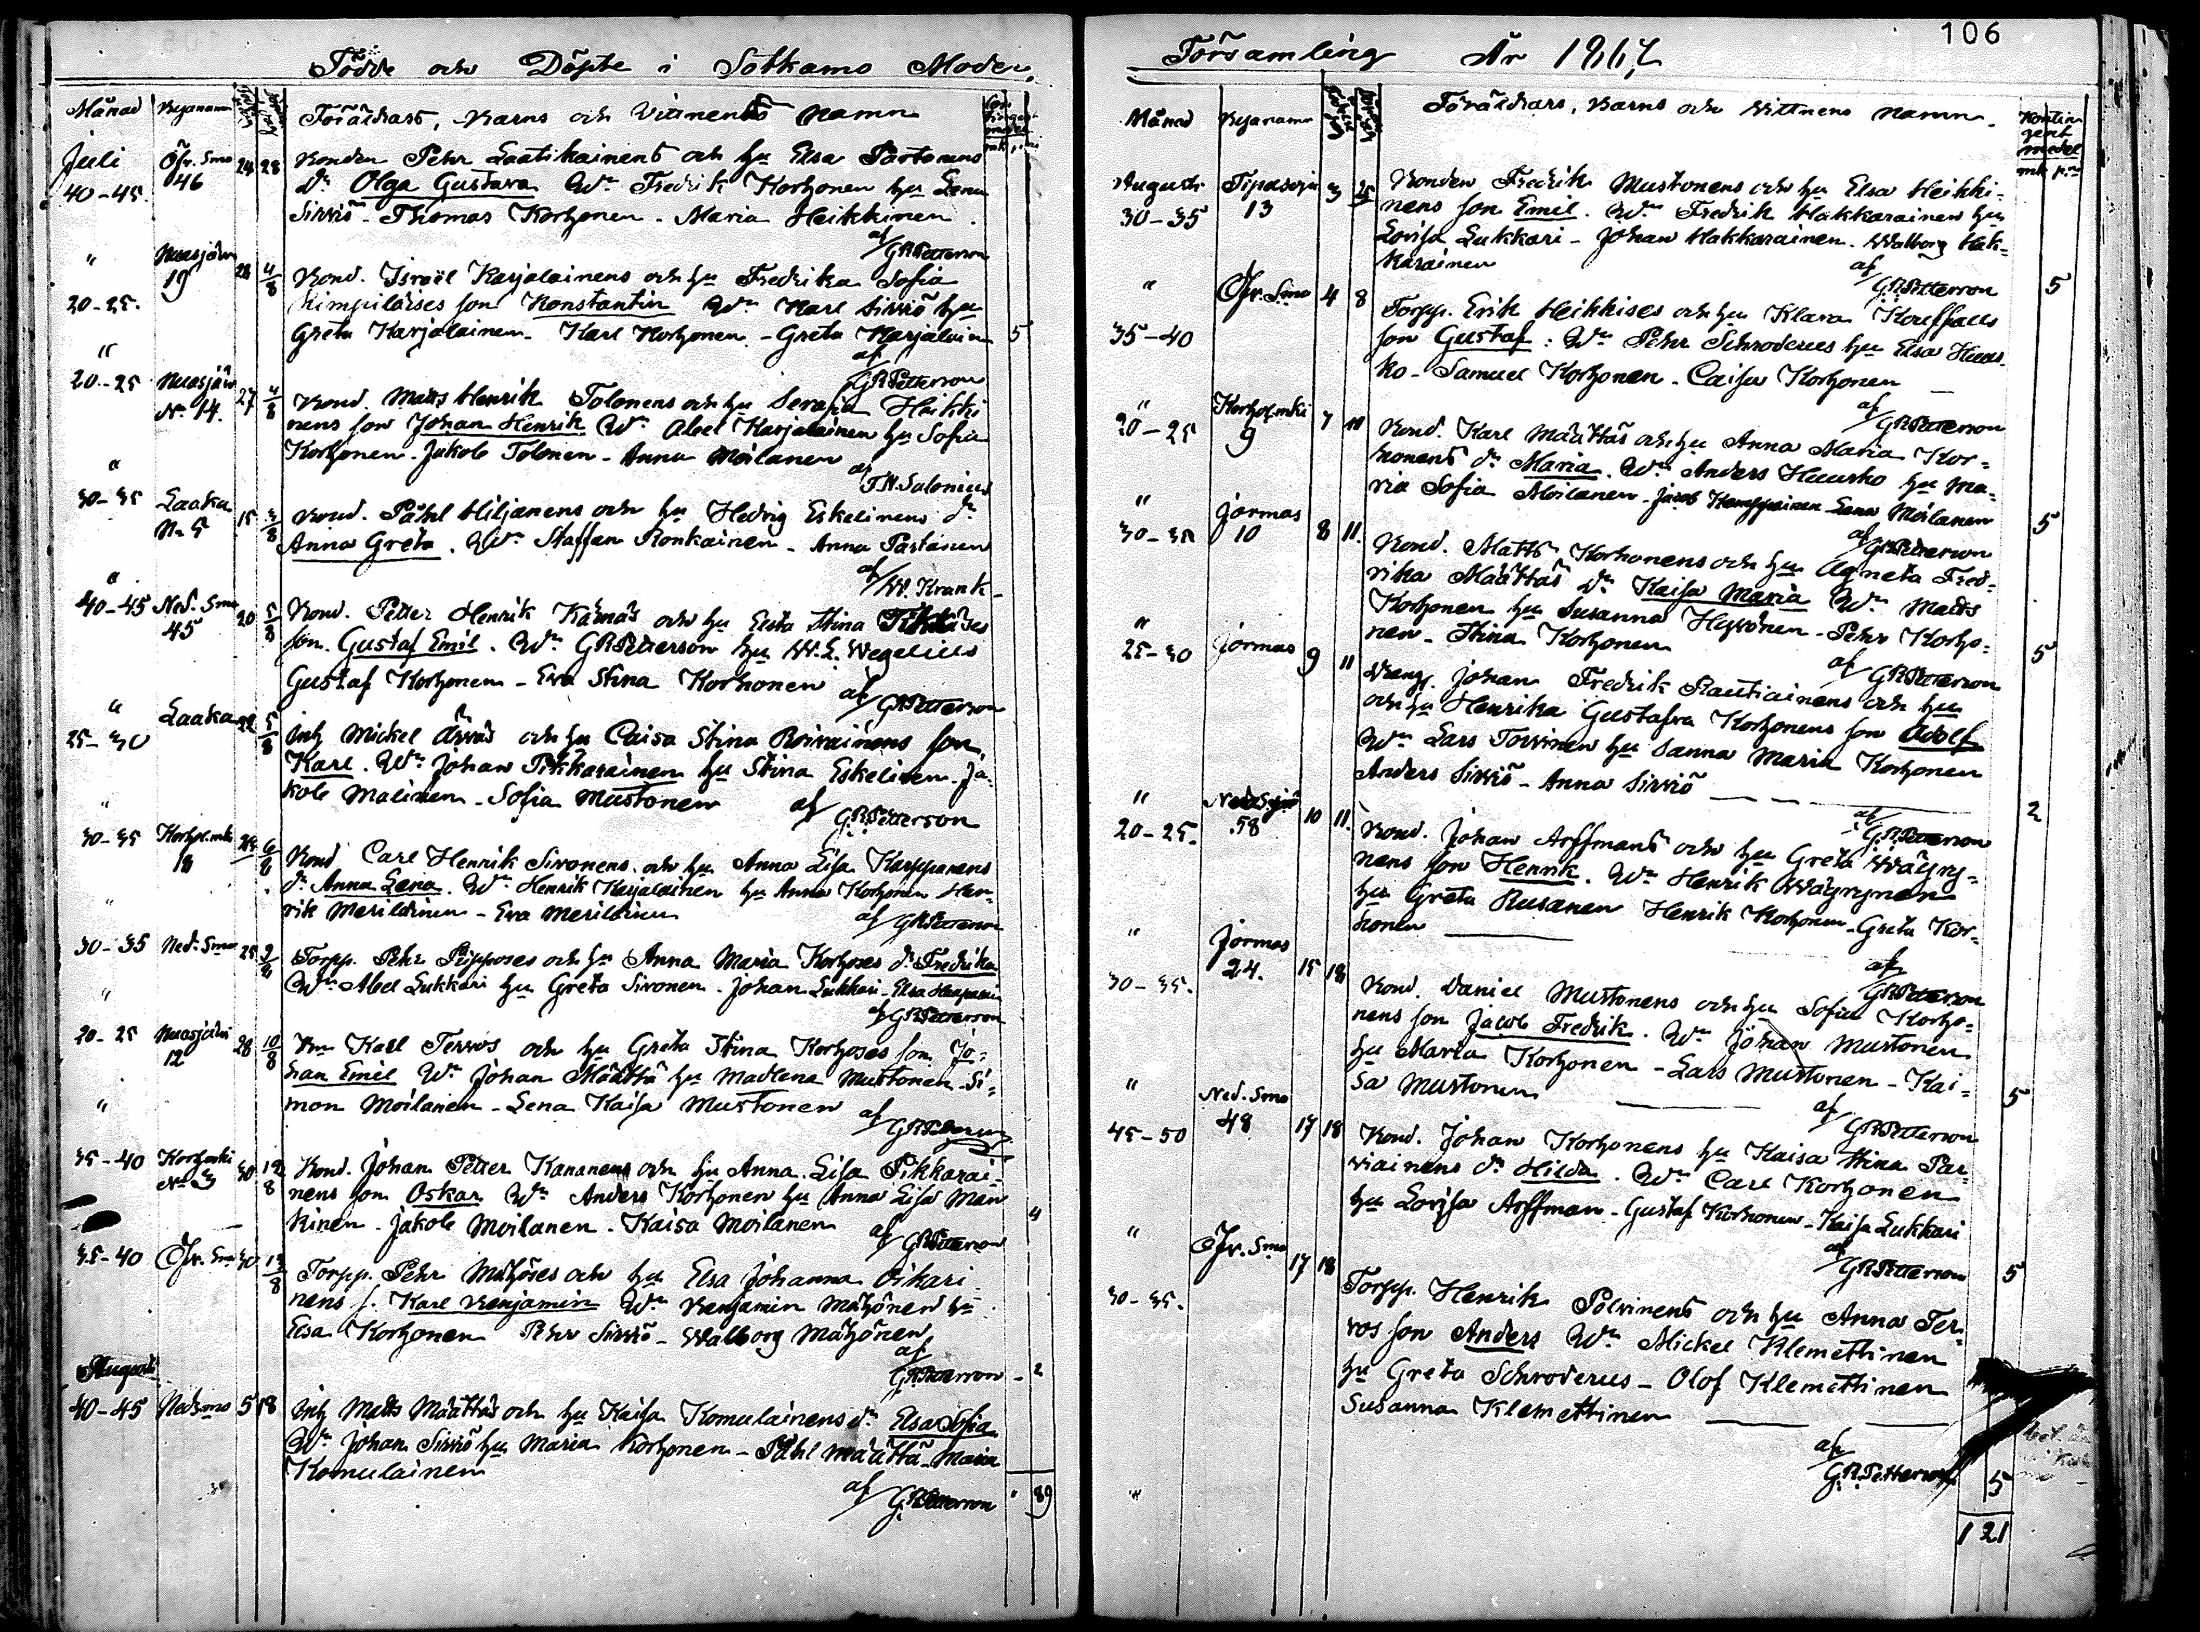 Födde och Döpte i Sotkamo Moder
Månad Byanamn Föräldrars, Barns och Vittnens Namn
Juli Öfr. Smo 24 28 Bonden Pehr Laatikainens och hu Elsa Partanens
40-45. 46 dr Olga Gustava Wn Fredrik Korhonen hu Lena
Sirviö - Thomas Korhonen - Maria Heikkinen
af GRPetterson
" Nuasjärvi 28 4/8 Bond. Israël Karjalainens och hu Fredrika Sofia
20-25. 19 Kimpiläises son Konstantin Wn Karl Sirviö hu
Greta Karjalainen - Karl Korhonen - Greta Karjalain 5
af GRPetterson
"
20-25 Nuasjärvi 27 4/8 Bond. Matts Henrik Tolonens och hu Serafia Heikki
No 14. nens son Johan Henrik Wn Abel Karjalainen hu Sofia
Korhonen - Jakob Tolonen - Anna Moilanen
af T.W.Salonius
"
30-35 Laaka 15 Bond. Påhl Hiljanens och hu Hedvig Eskelinens dr
No 5 Anna Greta. Wn Staffan Ronkainen - Anna Partanen
af W. Krank
"
40-45 Ned. Smo 20 5/8 Bond. Petter Henrik Kärnäs och hu Eva Stina
45 son. Gustaf Emil. Wn GRPetterson hu W.L. Wegelius
Gustaf Korhonen - Eva Stina Korhonen
af GRPetterson
" Laaka 5/8 Inh Mickel Ärväs och hu Caisa Stina Roivainens son
25-30 Karl. Wn Johan Pikkarainen hu Stina Eskelinen - Ja-
kob Malinen - Sofia Mustonen af GRPetterson
"
30-35 Korhol.mki 6/8 Bond Carl Henrik Sivonens och hu Anna Lisa Karppanens
18 dr Anna Lena. Wn Henrik Karjalainen hu Anna Korhonen Hen-
rik Meriläinen - Eva Meriläinen af GRPetterson
"
30-35 Ned. Smo 25 9/8 Torpp. Pehr Piipposes och hu Anna Maria Korhoses dr Fredrika
Wn Abel Lukkari hu Greta Sivonen - Johan Lukkari - Elsa
" af GRPetterson
20-25 Nuasjärvi 28 10/8 Bn Karl Tervos och hu Greta Stina Korhoses son Jo-
12 han Emil Wn Johan Määttä hu Madlena Mustonen - Si-
" mon Moilanen - Lena Kaisa Mustonen af
GRPetterson
35-40 Korholmki 30 12/8 Bond. Johan Petter Kananens och hu Anna Lisa Pikkarai-
No 3 nens son Oskar Wn Anders Korhonen hu Anna Lisa Man
kinen - Jakob Moilanen - Kaisa Moilanen 4
af GRPetterson
35-40 Öfr. Smo 30 Torpp. Pehr Mähöses och hu Elsa Johanna Oikari
nens s. Karl Benjamin Wn Benjamin Mähönen hu
Elsa Korhonen Pehr Sirviö - Walborg Mähönen
Augusti af GRPetterson - 2
40-45 Ned Smo 5 18 Inh Matts Määttäs och hu Kaisa Komulainens dr Elsa Sofia
Wn Johan Sirviö hu Maria Korhonen - Påhl Määttä - Maria
Komulainen
af GRPetterson " 89
Församling År 1867 106
Månad Byanamn Föräldrars, Barns och Vittnens Namn. Kontin
gent
medel
mk pni
Augusti Tipasoja 3 Bonden Fredrik Mustonens och hu Elsa Heikki-
30-35 13 nens son Emil. Wn Fredrik Hakkarainen hu
Lovisa Lukkari - Johan Hakkarainen. Walborg Hak-
karainen af GRPetterson 5
" Öfr. Smo 4 8 Torpp. Erik Heikkises och hu Klara
35-40 son Gustaf: Wn Pehr Schroderus hu Elsa Huus-
ko - Samuel Korhonen - Caisa Korhonen
af GRPetterson
" Korhol.mki 7 Bond. Karl Määttäs och hu Anna Maria Kor-
20-25 9 honens dr Maria. Wn Anders Huusko hu Ma-
ria Sofia Moilanen - Jacob Kemppainen Lena Moilanen 5
af GRPetterson
" Jormas 8 11. Bond. Matts Korhonens och hu Agneta Fred-
10 rika Määttäs dr Kaisa Maria Wn Matts
Korhonen hu Susanna Hyvönen - Pehr Korho-
nen - Stina Korhonen 5
af GRPetterson
" Jormas 9 11 Johan Fredrik Rautiainens och hu
25-30 och hu Henrika Gustafva Korhonens son Adolf
Wn Lars Torvinen hu Sanna Maria Korhonen
Anders Sirviö - Anna Sirviö 2
af GRPetterson
" 58 10 11. Bond. Johan Arffmans och hu Greta Wäyry-
20-25. nens son Henrik. Wn Henrik Wäyrynen
hu Greta Rusanen Henrik Korhonen - Greta Kor-
honen
af GRPetterson
" Jormas 15 18 Bond. Daniel Mustonens och hu Sofia Korho-
30-35. 24. nens son Jacob Fredrik. Wn Johan Mustonen
hu Maria Korhonen - Lars Mustonen - Kai-
sa Mustonen 5
af GRPetterson
" Ned. Smo 17 18 Bond. Johan Korhonens hu Kaisa Stina Par-
45-50 48 viainens dr Hilda. Wn Carl Korhonen
hu Lovisa Arffman - Gustaf Korhonen - Kaisa Lukkari
af GRPetterson 5
" Öfr. Smo 17 18 Torpp. Henrik Polvinens och hu Anna Ter-
30-35. vos son Anders Wn Mickel Klemettinen
hu Greta Schroderus - Olof Klemettinen
Susanna Klemettinen
af
G.R.Petterson 5
" 1 21